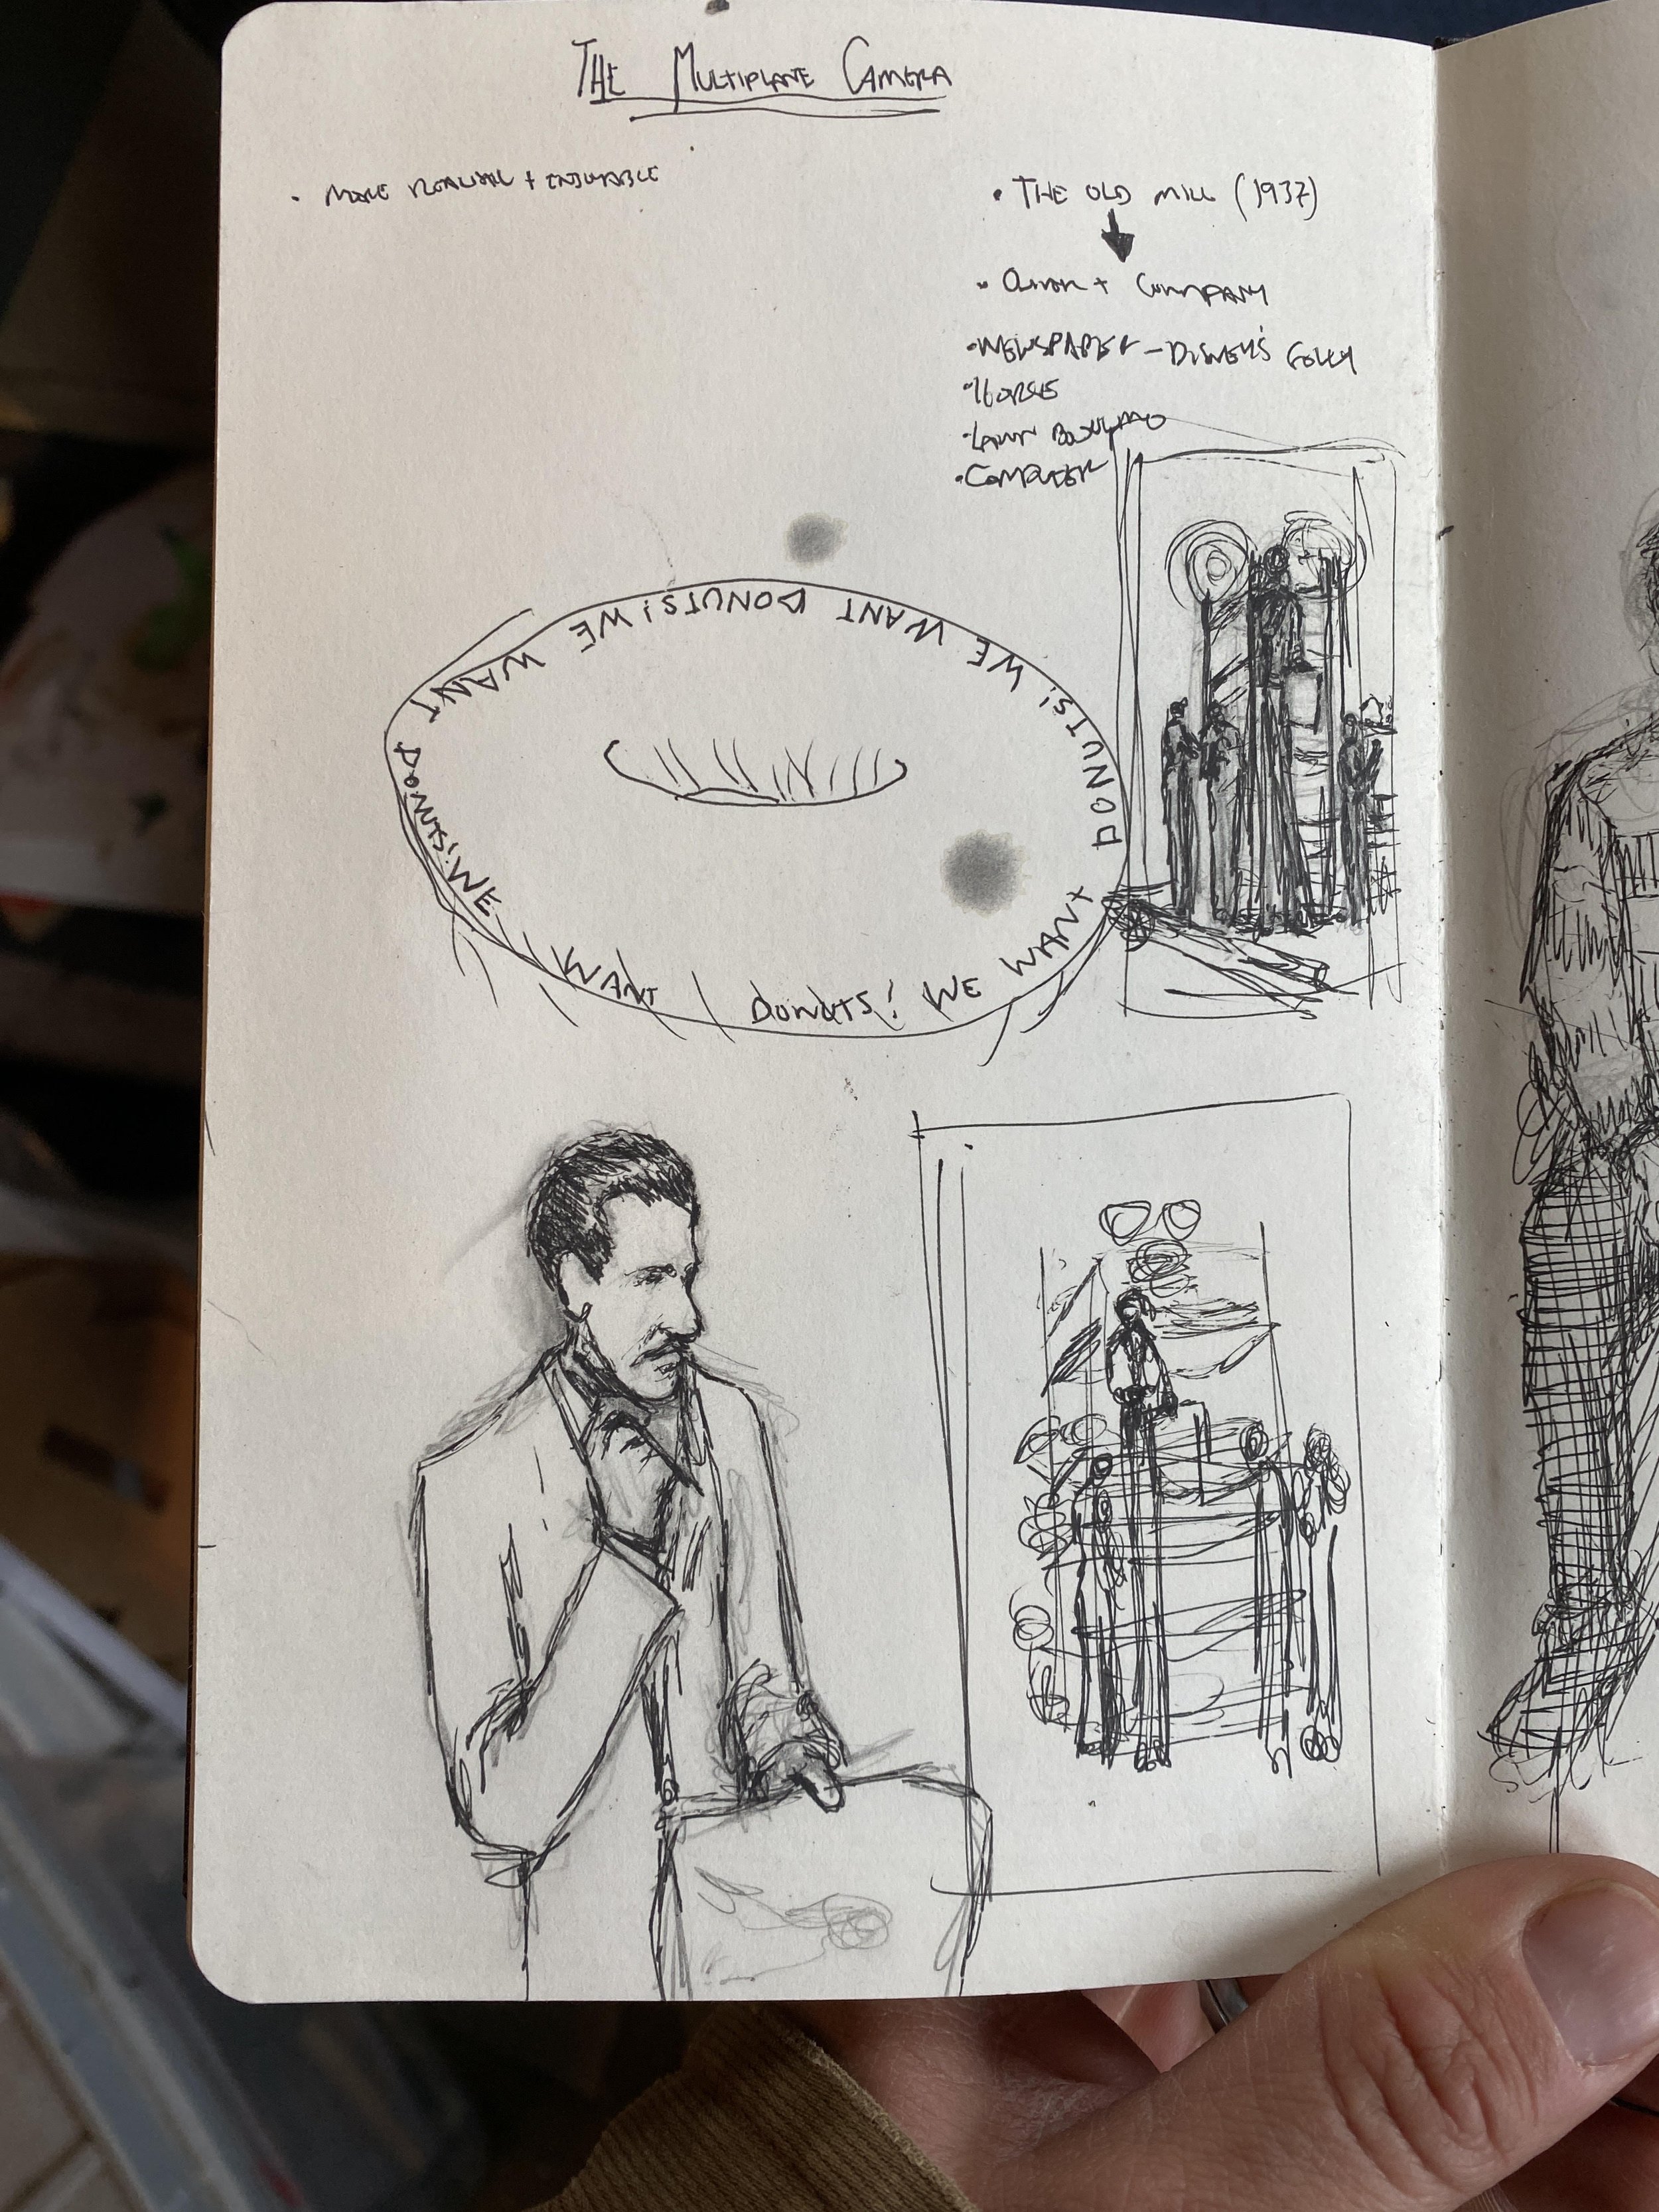 THE MULTIPLANE CAMERA
• MORE + ENJOYABLE
• THE OLD MILL (1937)
• OLIVER + COMPANY
• NEWSPAPER - DISNEY'S FOLLY
• HORSE
• LAWN
• COMPUTER
WE WANT DONUTS! WE WANT DONUTS! WE WANT DONUTS! WE WANT DONUTS!